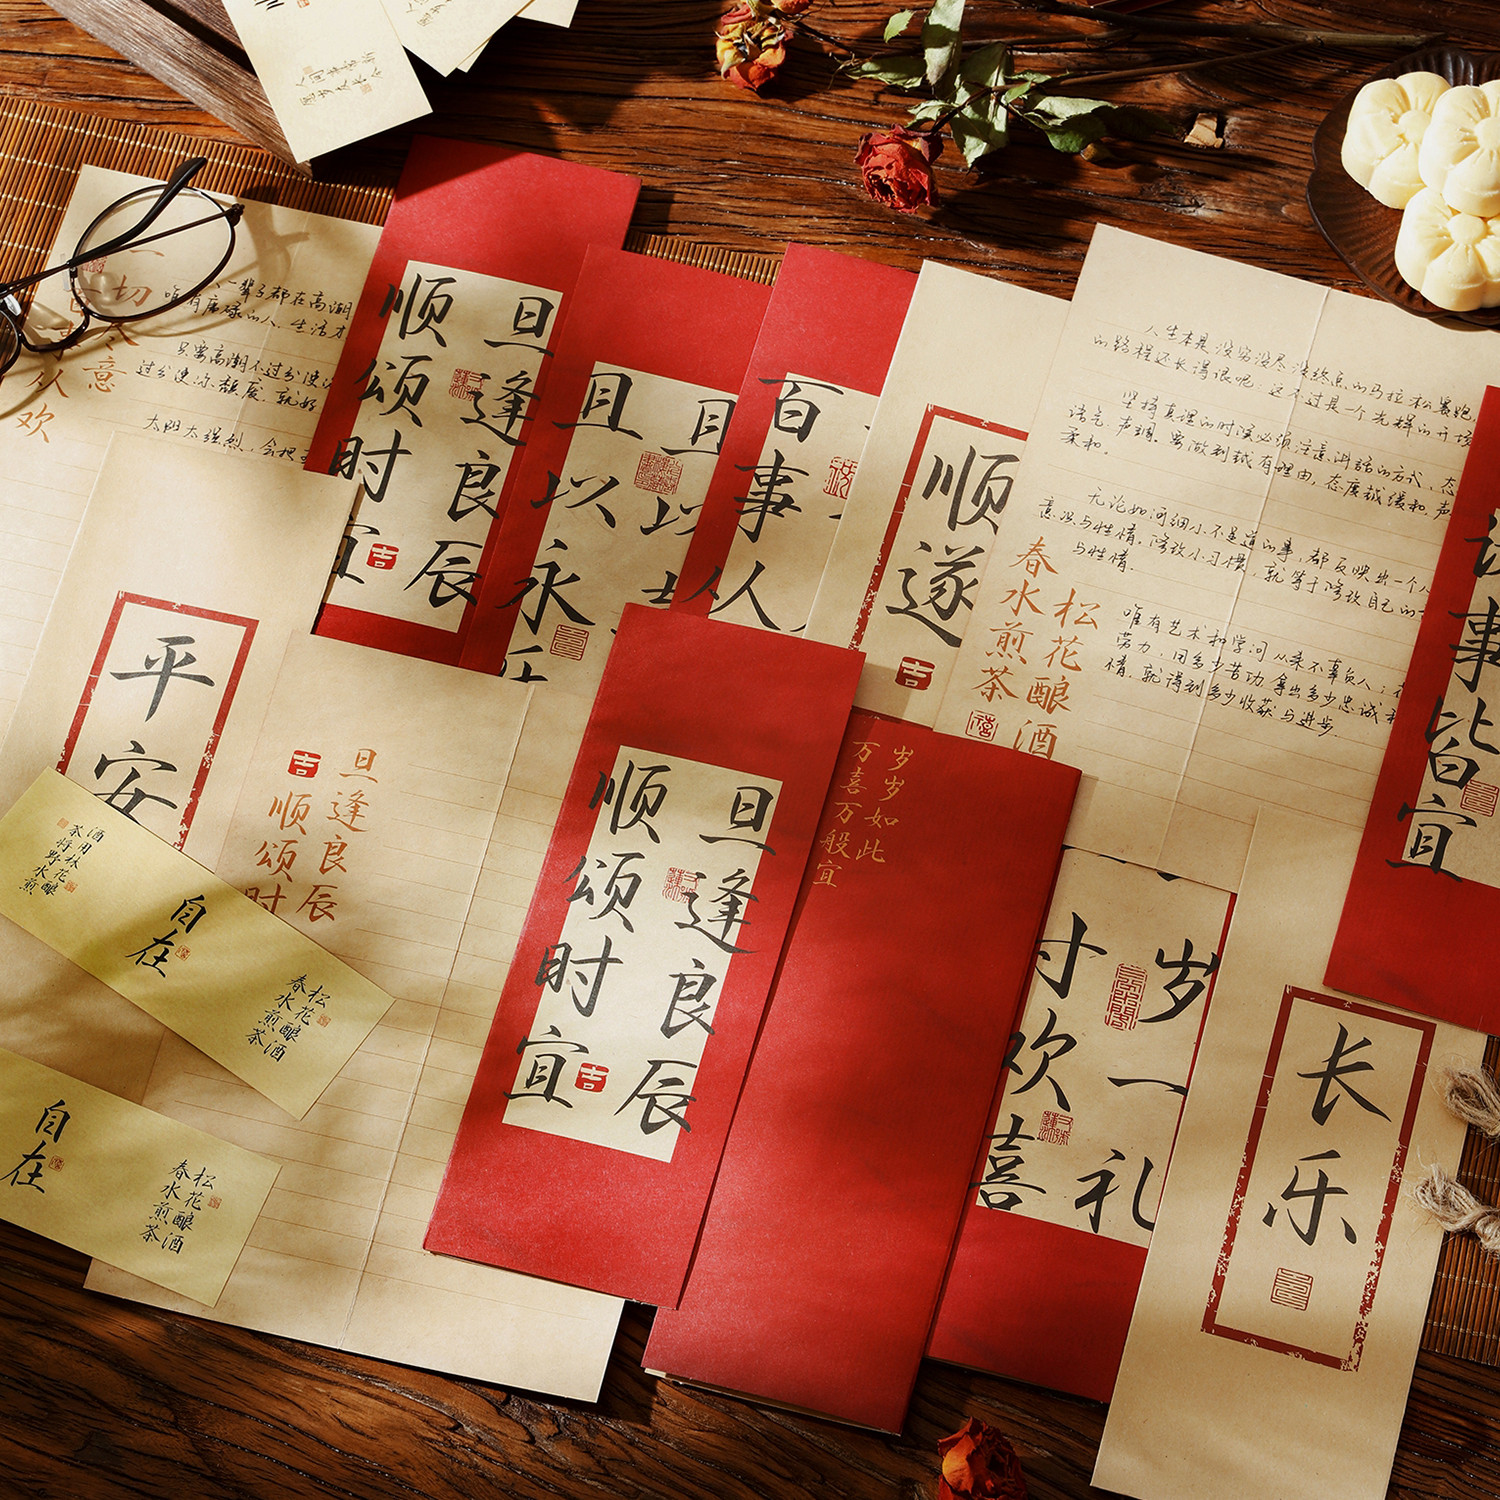 一切尽意
百事从欢
一辈子都在高潮
唯有庸碌的人，生活才
只要高潮不过分使
过分使你颓废，就好
太阳太强烈，会把
旦逢良辰
顺颂时宜
吉
且以永
且以
百事从
顺遂
吉
人生本是没穷没尽没终点的马拉松赛跑，
的路程还长得很呢：这不过是一个光辉的开场
坚持真理的时深必须注意讲话的方式，态
语气，声调。要做到越有理由，态度越缓和，声
柔和。
无论如何细小不足道的事，都反映出一个人
意识与性情。修改小习惯，就等于修改自己的
与性情。
唯有艺术和学问从来不辜负人：花
劳力，用多少苦功，拿出多少忠诚和
情，就得到多少收获与进步。
松花酿酒
春水煎茶
禧
事皆宜
平安
旦逢良辰
顺颂时
吉
酒用林花酿
茶将野水煎
自在
松花酿酒
春水煎茶
自在
松花酿酒
春水煎茶
旦逢良辰
顺颂时宜
吉
岁岁如此
万喜万般宜
岁一礼
寸欢喜
长乐